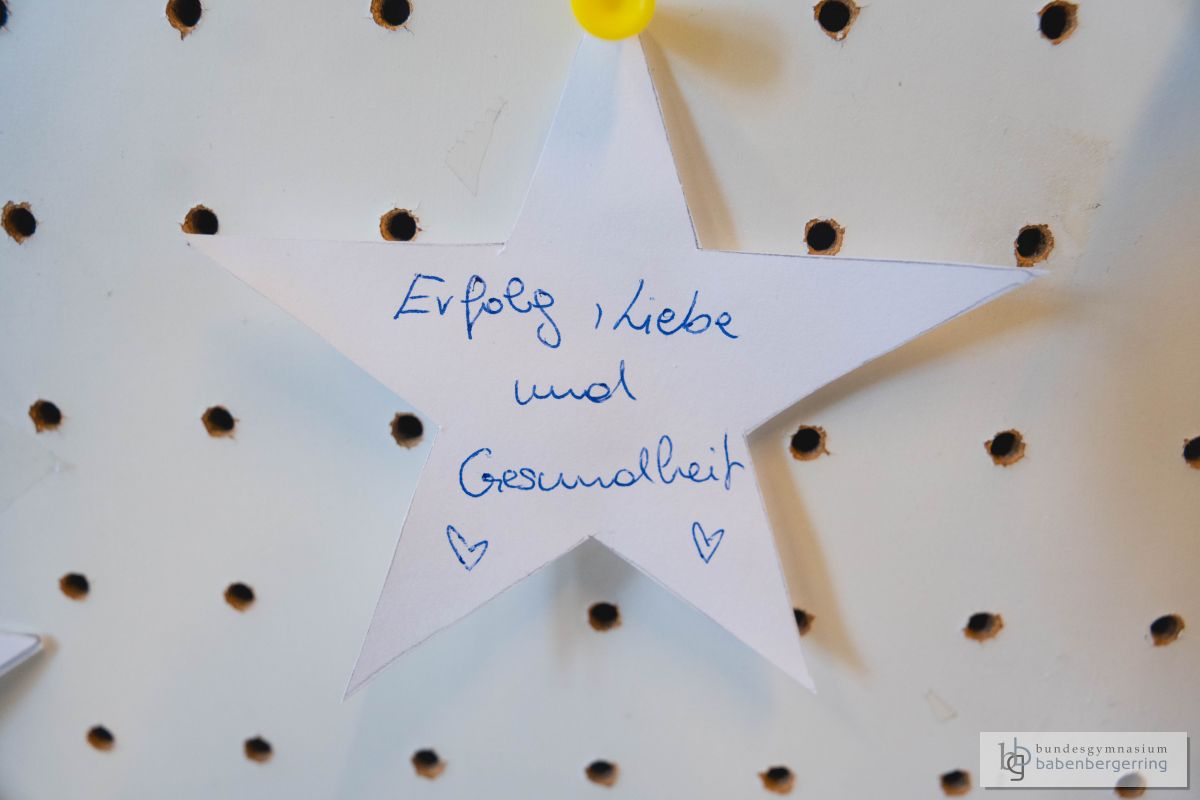 Erfolg, Liebe
und
Gesundheit
bundesgymnasium
babenbergerring